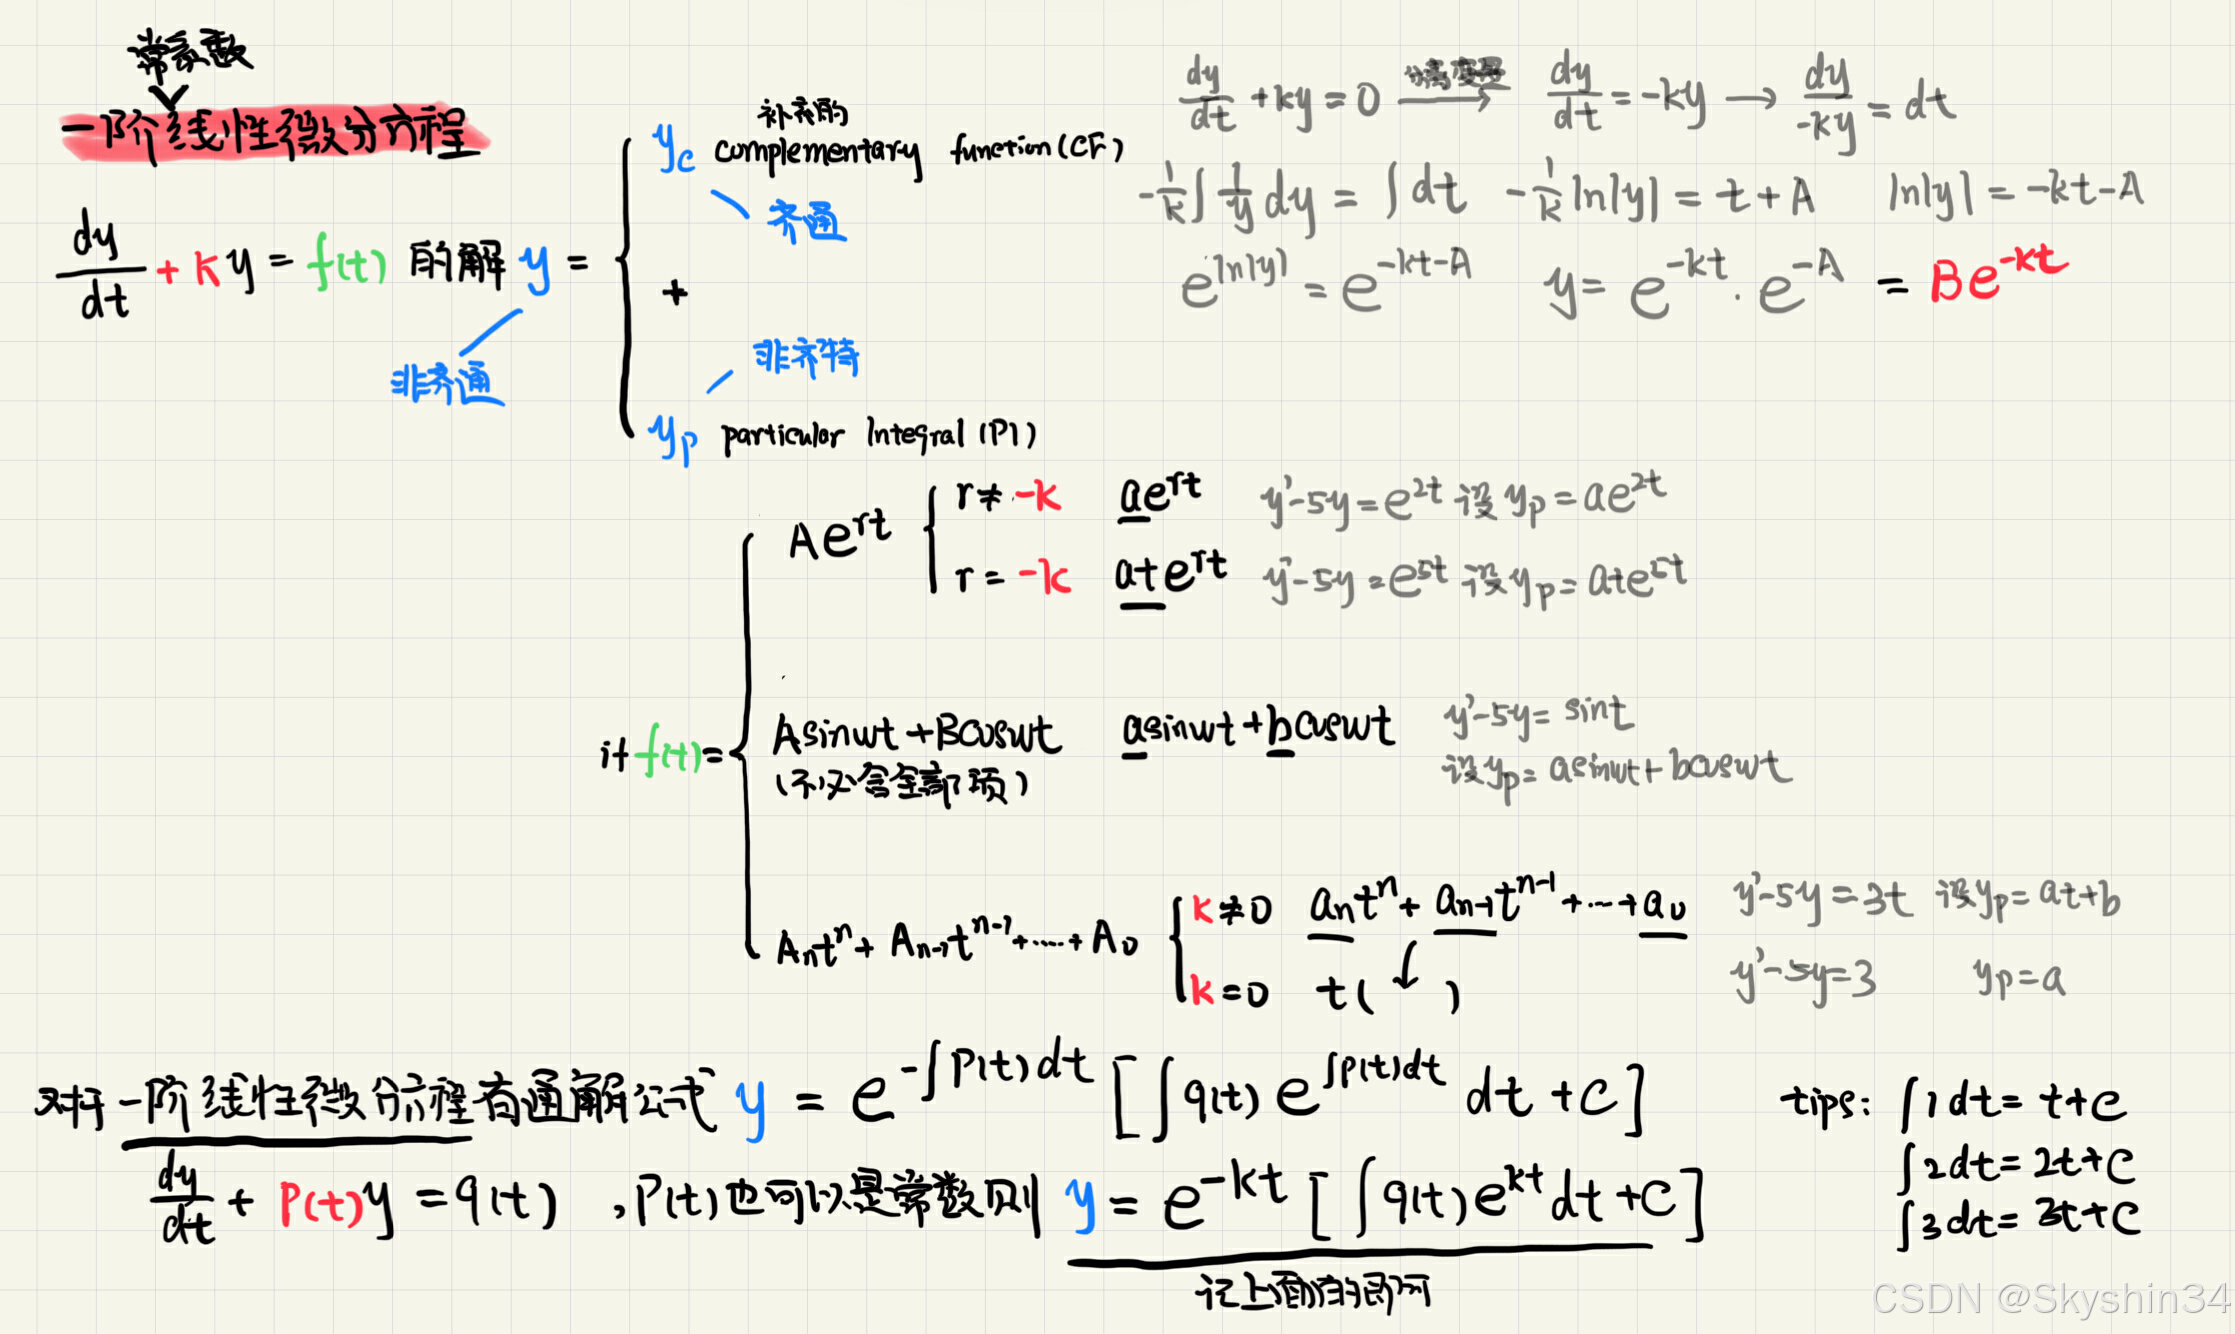 常系数
一阶线性微分方程
dy/dt + ky = f(t) 的解 y =
非齐通
补充的
y_c complementary function (CF)
齐通
+
非齐特
y_p particular Integral (PI)
dy/dt + ky = 0 —分离变量→ dy/dt = -ky → dy/-ky = dt
-1/k ∫ 1/y dy = ∫ dt   -1/k ln|y| = t + A   ln|y| = -kt-A
e^{ln|y|} = e^{-kt-A}   y = e^{-kt} · e^{-A} = Be^{-kt}
if f(t) =
Ae^{rt}
r ≠ -k   ae^{rt}   y'-5y = e^{2t} 设 y_p = ae^{2t}
r = -k   ate^{rt}   y'-5y = e^{5t} 设 y_p = ate^{5t}
Asinwt + Bcoswt   asinwt + bcoswt   y'-5y = sint
(不必含全部项)   设 y_p = asinwt + bcoswt
A_n t^n + A_{n-1} t^{n-1} + ····· + A_0
k ≠ 0   a_n t^n + a_{n-1} t^{n-1} + ··· + a_0   y'-5y = 3t 设 y_p = at+b
k = 0   t( ↓ )   y'-5y = 3   y_p = a
对于一阶线性微分方程有通解公式 y = e^{-∫P(t)dt} [∫q(t) e^{∫p(t)dt} dt + C]
dy/dt + P(t)y = q(t) , P(t)也可以是常数则 y = e^{-kt} [∫q(t) e^{kt} dt + C]
记上面的即可
tips: ∫1dt = t+C
∫2dt = 2t+C
∫3dt = 3t+C
CSDN @Skyshin34